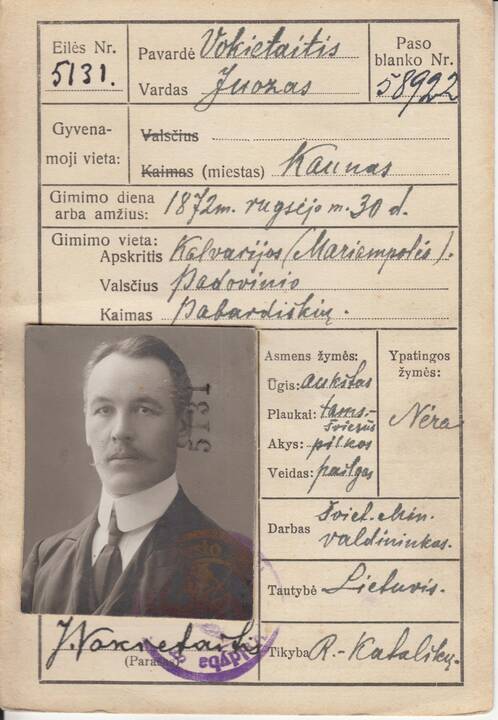 Eilės Nr.
5131.
Pavardė Vokietaitis
Vardas Juozas
Paso
blanko Nr.
58922
Gyvena-
moji vieta:
Valsčius
Kaimas (miestas) Kaunas
Gimimo diena
arba amžius: 1872 m. rugsėjo m. 30 d.
Gimimo vieta:
Apskritis Kalvarijos (Mariampolės).
Valsčius Padovinio
Kaimas Pabardiškių.
5131
Asmens žymės:
Ūgis: aukštas
Plaukai: tams.-
šviesūs
Akys: pilkos
Veidas: pailgas
Ypatingos
žymės:
Nėra
Darbas Šviet. Min.
valdininkas.
Tautybė Lietuvis.
Tikyba R.-Katalikų.
J. Vokietaitis
(Parašas)